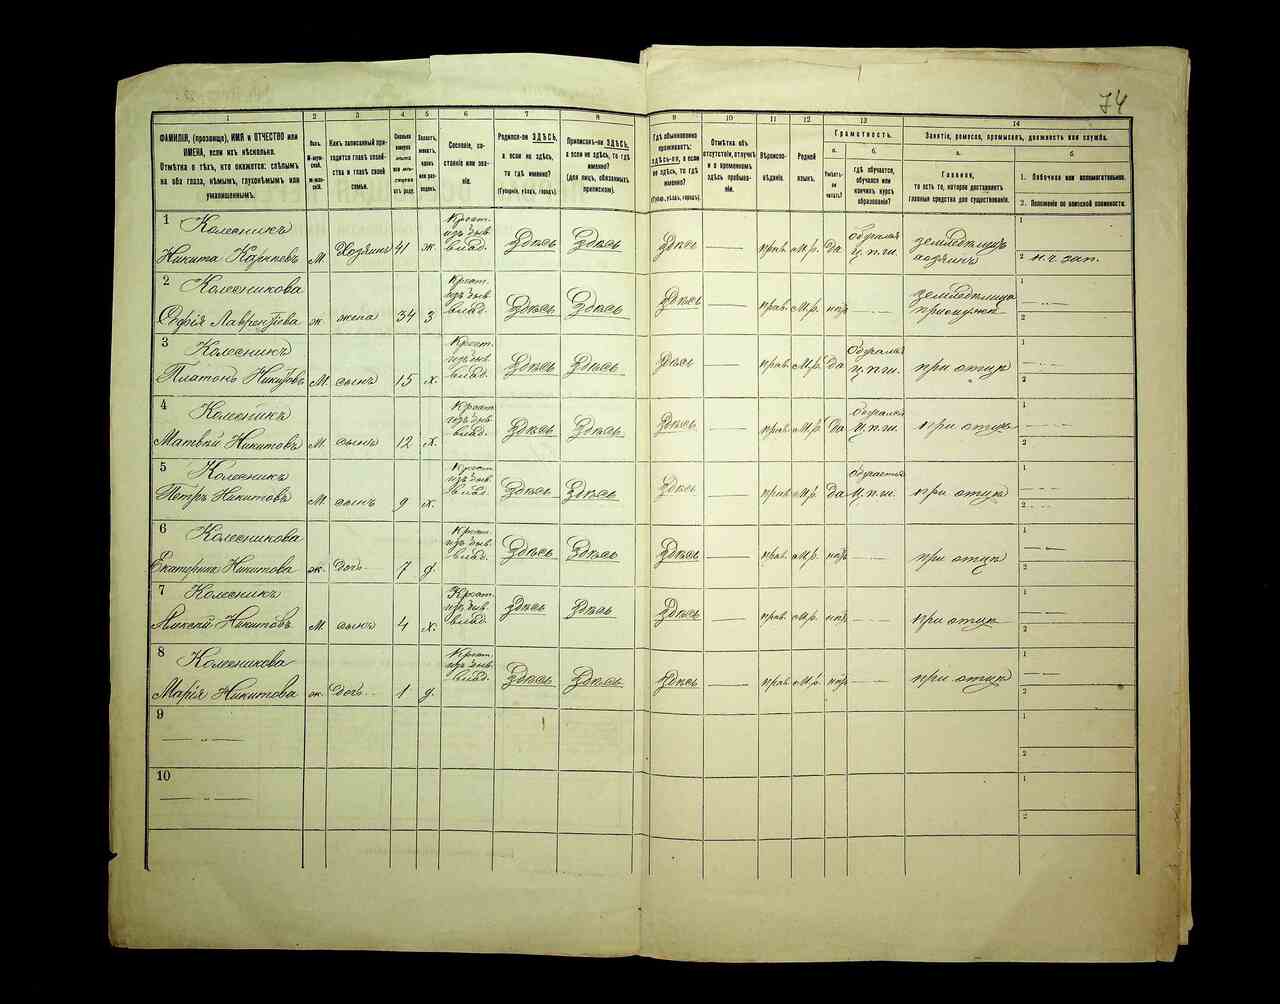 74
1 2 3 4 5 6 7 8 9 10 11 12 13 14
ФАМИЛІЯ, (прозвище), ИМЯ и ОТЧЕСТВО или
ИМЕНА, если ихъ нѣсколько.
Отмѣтка о тѣхъ, кто окажется: слѣпымъ
на оба глаза, нѣмымъ, глухонѣмымъ или
умалишеннымъ.
Полъ.
Какъ записанный при-
ходится главѣ хозяй-
ства и главѣ своей
семьи.
Сколько
Сословіе, со-
стояніе или зва-
ніе.
Родился-ли ЗДѢСЬ,
а если не здѣсь,
то гдѣ именно?
(Губернія, уѣздъ, городъ).
Приписанъ-ли ЗДѢСЬ,
а если не здѣсь, то гдѣ
именно?
(для лицъ, обязанныхъ
припиской).
Гдѣ обыкновенно
проживаетъ:
ЗДѢСЬ-ли, а если
не здѣсь, то гдѣ
именно?
(Губерн., уѣздъ, городъ).
Отмѣтка объ
отсутствіи, отлучкѣ
и о временномъ
здѣсь пребыва-
ніи.
Вѣроиспо-
вѣданіе.
Родной
языкъ.
Грамотность.
а. б.
Умѣетъ-
ли
читать?
гдѣ обучается,
обучался или
кончилъ курсъ
образованія?
Занятіе, ремесло, промыселъ, должность или служба.
а. б.
Главное,
то есть то, которое доставляетъ
главныя средства для существованія.
1. Побочное или вспомогательное.
2. Положеніе по воинской повинности.
1 Колесникъ
Никита Карповъ М. Хозяинъ 41 ж. Крест. изъ быв. влад. Здѣсь Здѣсь Здѣсь — прав. М.р. да обучался ц.п.ш. земледѣлецъ хозяинъ 1
2 н.ч. зап.
2 Колесникова
Софія Лаврентіева ж. жена 34 з Крест. изъ быв. влад. Здѣсь Здѣсь Здѣсь — прав. М.р. нѣтъ — земледѣлица при мужѣ 1
2
3 Колесникъ
Платонъ Никитовъ М. сынъ 15 х. Крест. изъ быв. влад. Здѣсь Здѣсь Здѣсь — прав. М.р. да обучался ц.п.ш. при отцѣ 1
2
4 Колесникъ
Матвѣй Никитовъ М. сынъ 12 х. Крест. изъ быв. влад. Здѣсь Здѣсь Здѣсь — прав. М.р. да обучался ц.п.ш. при отцѣ 1
2
5 Колесникъ
Петръ Никитовъ М. сынъ 9 х. Крест. изъ быв. влад. Здѣсь Здѣсь Здѣсь — прав. М.р. да обучается ц.п.ш. при отцѣ 1
2
6 Колесникова
Екатерина Никитова ж. дочь 7 д. Крест. изъ быв. влад. Здѣсь Здѣсь Здѣсь — прав. М.р. нѣтъ — при отцѣ 1
2
7 Колесникъ
Алексѣй Никитовъ М. сынъ 4 х. Крест. изъ быв. влад. Здѣсь Здѣсь Здѣсь — прав. М.р. нѣтъ — при отцѣ 1
2
8 Колесникова
Марія Никитова ж. дочь 1 д. Крест. изъ быв. влад. Здѣсь Здѣсь Здѣсь — прав. М.р. нѣтъ — при отцѣ 1
2
9 1
2
10 1
2